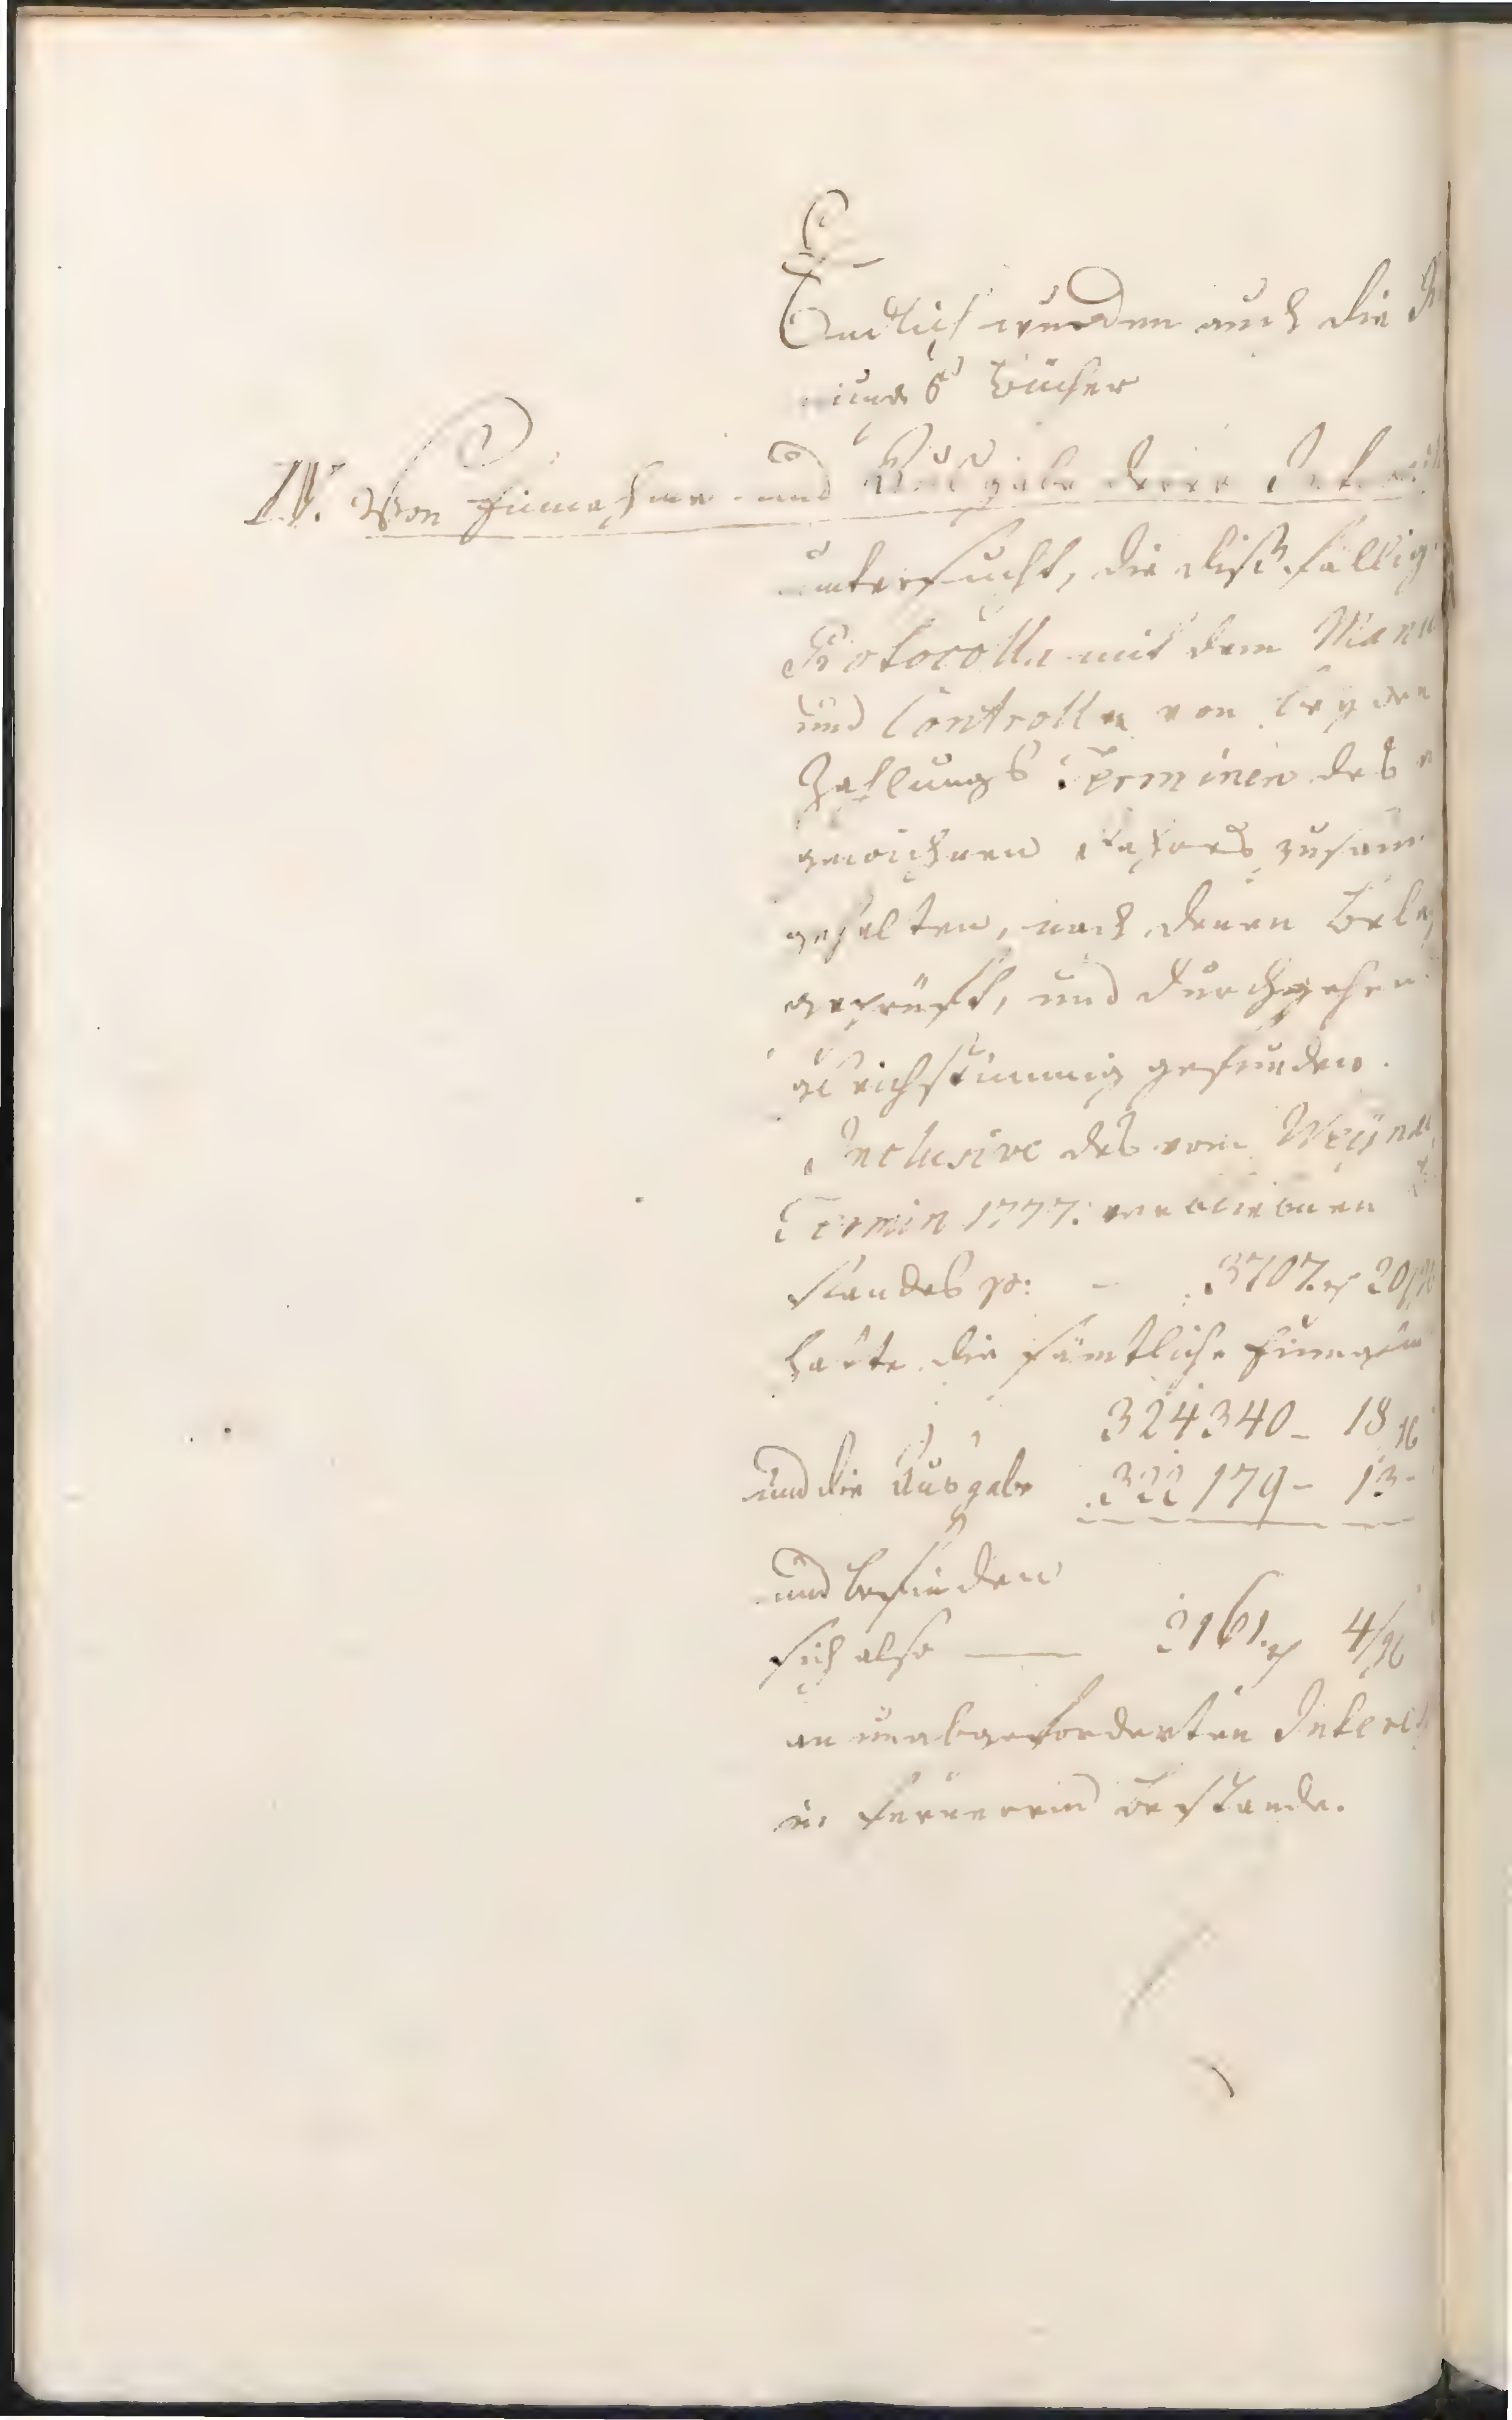 Endlich wurden auch die
nungs Bücher
IV. Von Einnahme und Ausgabe derer
untersucht, die dißfällig
Protocolla mit dem Manu
und Controlla von beyden
Zahlungs Terminen des
gewichnen Jahres zusam
gehalten, nach denen Bele
geprüft, und durchgehen
gleichstimmig gefunden.
Inclusive des vom Weyna
Termin 1777. verbliebnen
standes pr: - 3707. 20
hatte die sämtliche Einnahm
324340 - 18
und die Ausgabe 322179 - 13 -
und befinden
sich also — 2161. 4
an unabgeforderten Interes
in fernerem Bestande.